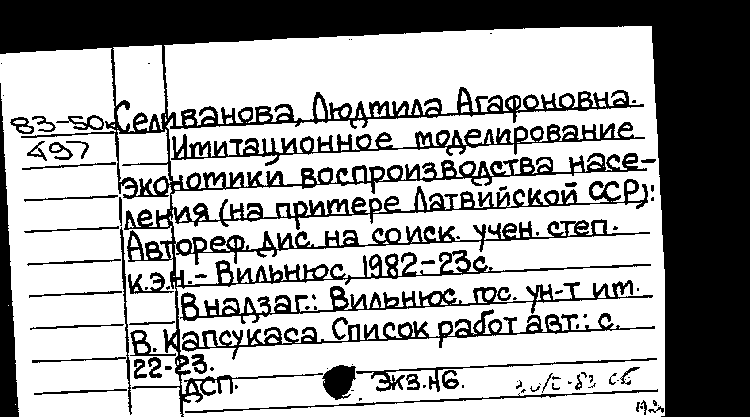 83-50к Селиванова, Людмила Агафоновна.
497 Имитационное моделирование
экономики воспроизводства насе-
ления (на примере Латвийской ССР):
Автореф. дис. на соиск. учен. степ.
к.э.н. – Вильнюс, 1982. – 23с.
В надзаг.: Вильнюс. гос. ун-т им.
В. Капсукаса. Список работ авт.: с.
22-23.
ДСП. Экз. №6.